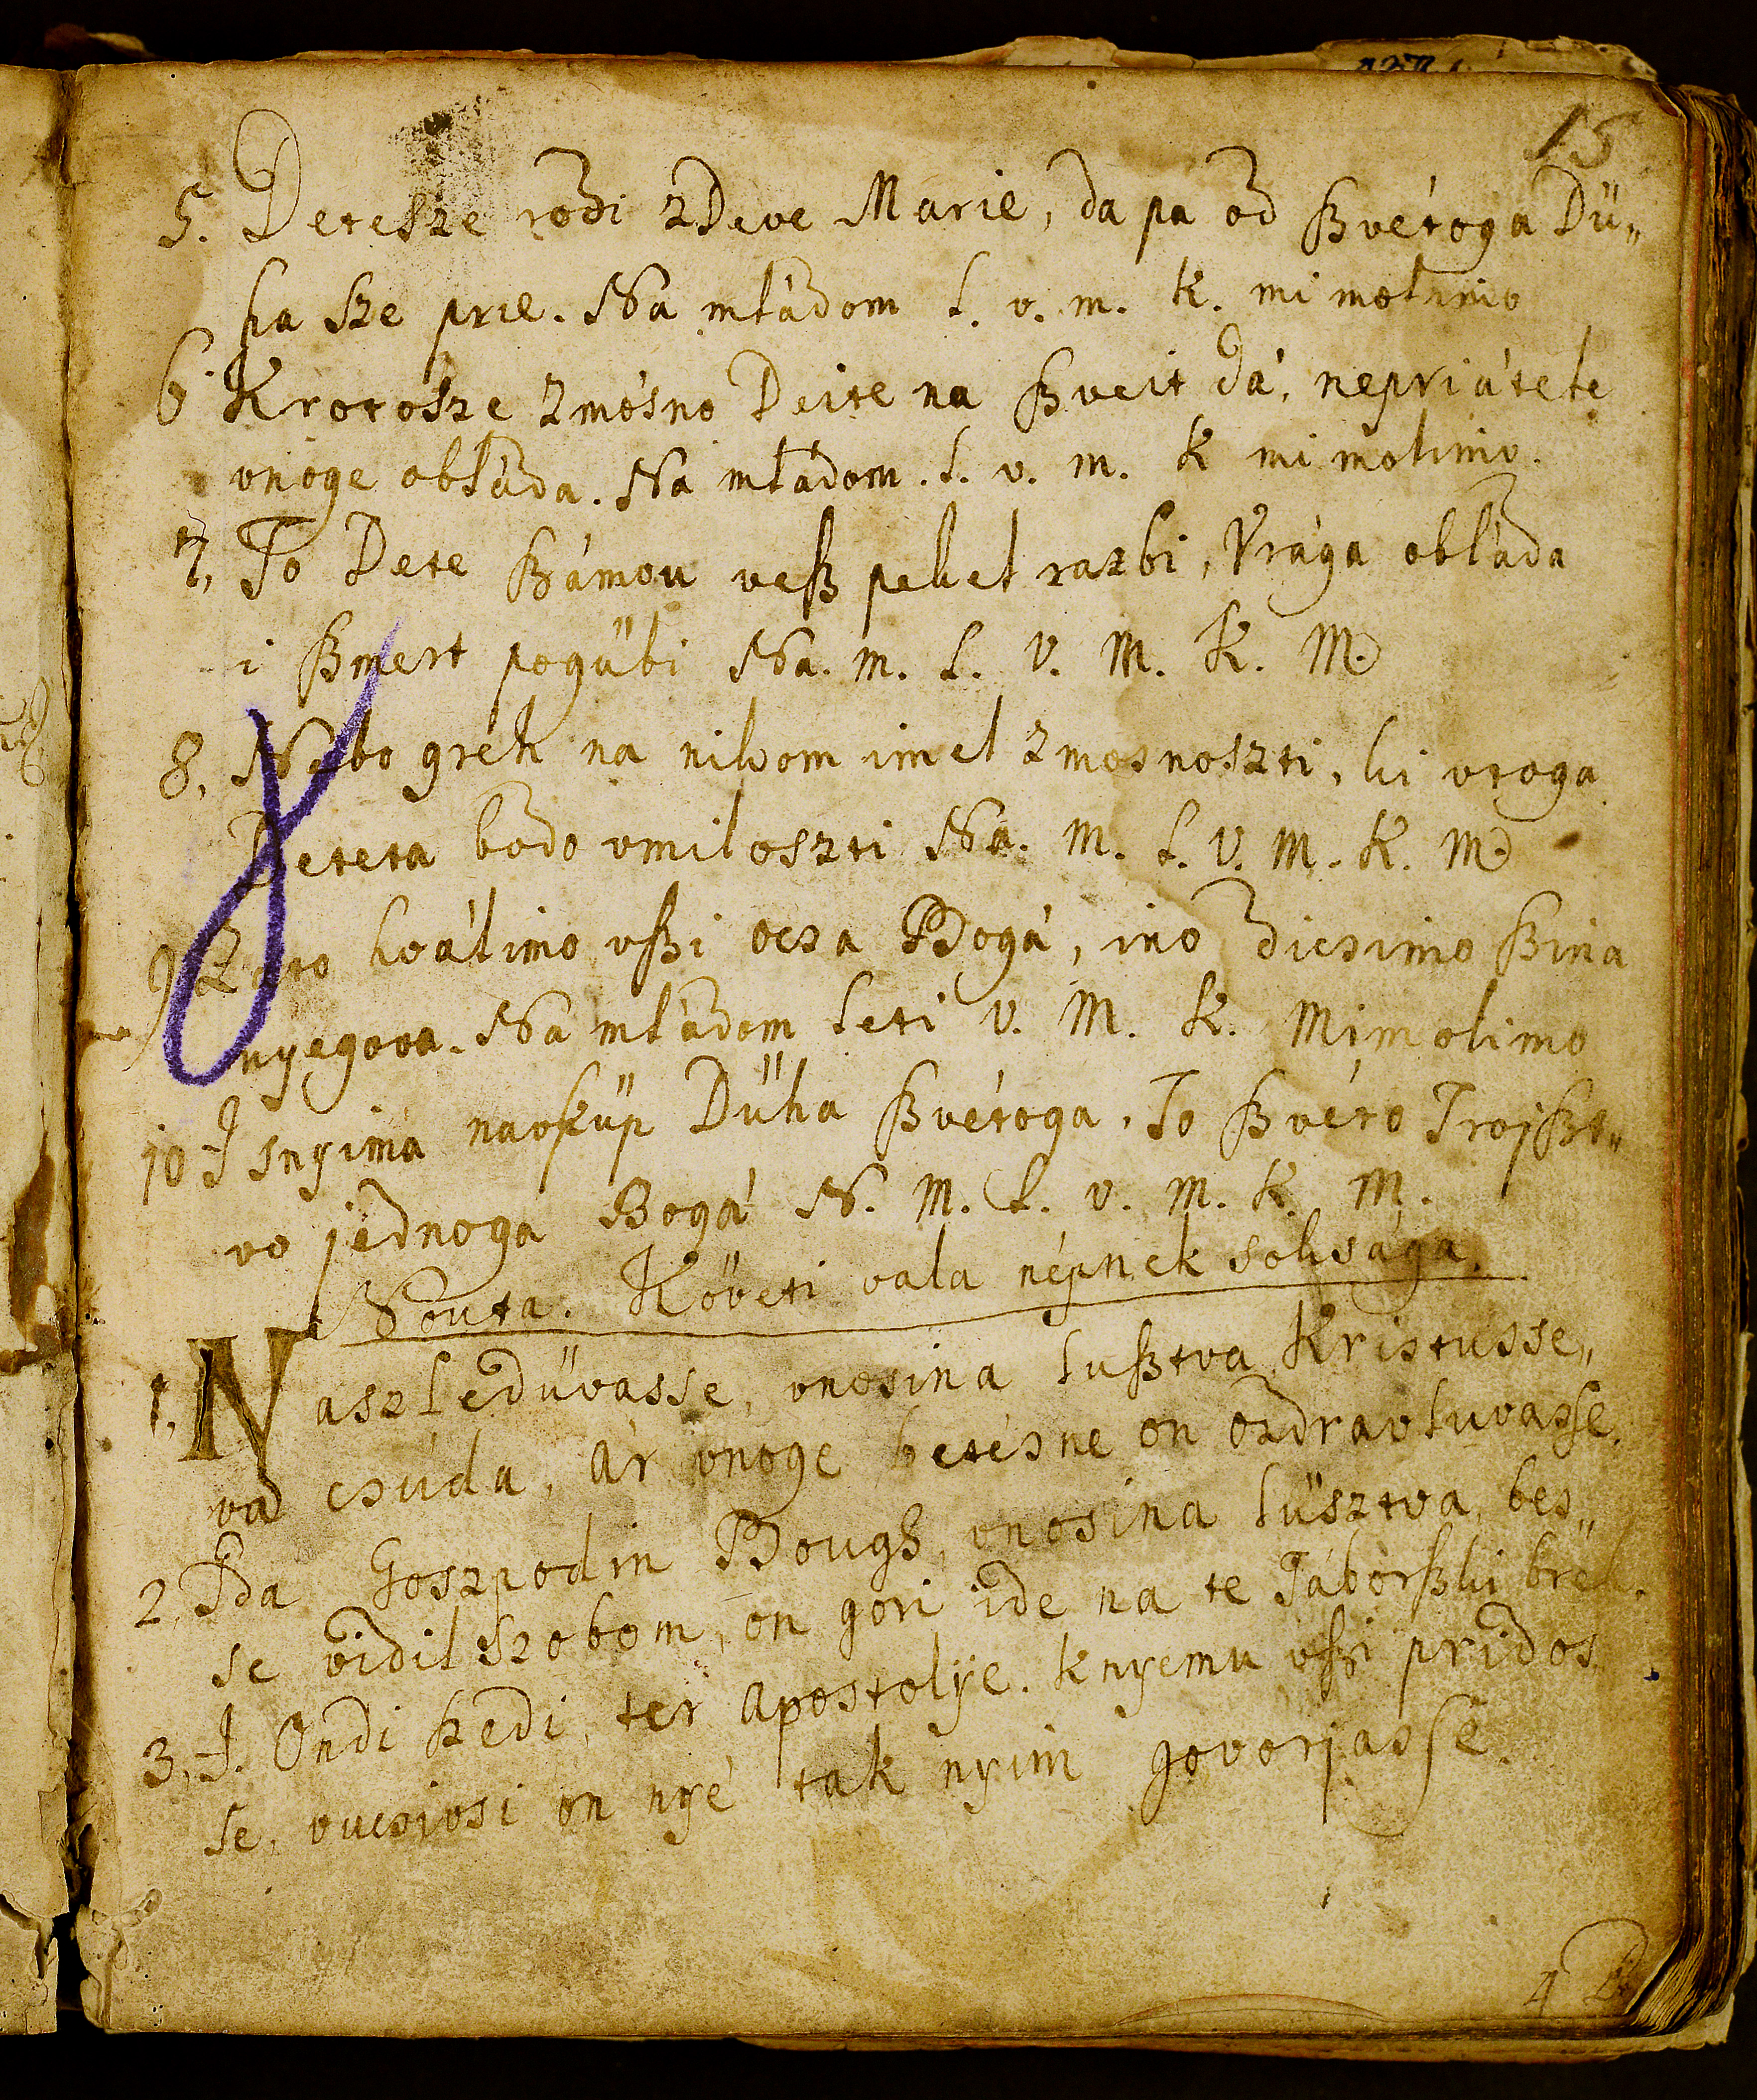 15
5. Detesze rodi zDeve Marie, da pa od ßvétoga Dü„
ha sze prie. Na mládom l. v. m. k. mi molimo
6. Krotosze zmosno Deite na ßveit dá, nepriátele
vnoge obláda. Na mládom. l. v. m. k mi molimo.
7, To Dete ßámou veß pekel razbi, Vrága obláda
i ßmert pogübi Na. m. l. v. m. k. M.
8, Nebo greh na nikom imel zmosnoszti, ki vtoga
Deteta bodo vmiloszti Na. m. l. v. m. k. M.
9 Zato hválimo vßi ocsa Bogá, ino dicsimo ßina
nyegova. Na mládom leti v. M. k. Mimolimo
10 I snyima navküp Düha ßvétoga, To ßvéto Trojßt„
vo jednoga Bogá N. M. l. v. m. k. M.
Nouta. Követi vala népnek soksága.
1, Naszledüvasse, vnosina lußtva Kristusse„
va csúda, ár vnoge betésne on ozdravluvasse.
2, Gda Goszpodin Bough, vnosina lüsztva, bes„
se vidil szobom, on gori ide na te Táborßki breh.
3, I. Ondi ßedi, ter apostolÿe. knyemu vßi pridos
se, vucsivsi on nyé tak nyim govorjasse.
4